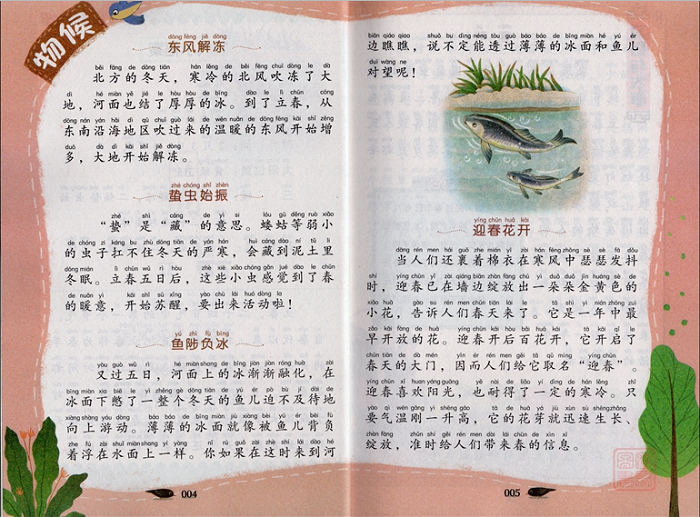 物候
dōng fēng jiě dòng
东风解冻
běi fāng de dōng tiān hán lěng de běi fēng chuī dòng le dà
北方的冬天，寒冷的北风吹冻了大
dì hé miàn yě jié le hòu hòu de bīng dào le lì chūn cóng
地，河面也结了厚厚的冰。到了立春，从
dōng nán yán hǎi dì qū chuī guò lái de wēn nuǎn de dōng fēng kāi shǐ zēng
东南沿海地区吹过来的温暖的东风开始增
duō dà dì kāi shǐ jiě dòng
多，大地开始解冻。
zhé chóng shǐ zhèn
蛰虫始振
zhé shì cáng de yì si lóu gū děng ruò xiǎo
“蛰”是“藏”的意思。蝼蛄等弱小
de chóng zi káng bu zhù dōng tiān de yán hán huì cáng dào ní tǔ lǐ
的虫子扛不住冬天的严寒，会藏到泥土里
dōng mián lì chūn wǔ rì hòu zhè xiē xiǎo chóng gǎn jué dào le chūn
冬眠。立春五日后，这些小虫感觉到了春
de nuǎn yì kāi shǐ sū xǐng yào chū lái huó dòng la
的暖意，开始苏醒，要出来活动啦！
yú zhì fù bīng
鱼陟负冰
yòu guò wǔ rì hé miàn shàng de bīng jiàn jiàn róng huà zài
又过五日，河面上的冰渐渐融化，在
bīng miàn xià biē le yì zhěng gè dōng tiān de yú ér pò bù jí dài de
冰面下憋了一整个冬天的鱼儿迫不及待地
xiàng shàng yóu dòng báo báo de bīng miàn jiù xiàng bèi yú ér bēi fù
向上游动。薄薄的冰面就像被鱼儿背负
zhe fú zài shuǐ miàn shang yí yàng nǐ rú guǒ zài zhè shí lái dào hé
着浮在水面上一样。你如果在这时来到河
004
biān qiáo qiao shuō bu dìng néng tòu guò báo báo de bīng miàn hé yú ér
边瞧瞧，说不定能透过薄薄的冰面和鱼儿
duì wàng ne
对望呢！
yíng chūn huā kāi
迎春花开
dāng rén men hái guǒ zhe mián yī zài hán fēng zhōng sè sè fā dǒu
当人们还裹着棉衣在寒风中瑟瑟发抖
shí yíng chūn yǐ zài qiáng biān zhàn fàng chū yì duǒ duǒ jīn huáng sè de
时，迎春已在墙边绽放出一朵朵金黄色的
xiǎo huā gào su rén men chūn tiān lái le tā shì yì nián zhōng zuì
小花，告诉人们春天来了。它是一年中最
zǎo kāi fàng de huā yíng chūn kāi hòu bǎi huā kāi tā kāi qǐ le
早开放的花。迎春开后百花开，它开启了
chūn tiān de dà mén yīn ér rén men gěi tā qǔ míng yíng chūn
春天的大门，因而人们给它取名“迎春”。
yíng chūn xǐ huan yáng guāng yě nài de liǎo yí dìng de hán lěng zhǐ
迎春喜欢阳光，也耐得了一定的寒冷。只
yào qì wēn gāng yì shēng gāo tā de huā yá jiù xùn sù shēng zhǎng
要气温刚一升高，它的花芽就迅速生长、
zhàn fàng zhǔn shí gěi rén men dài lái chūn de xìn xī
绽放，准时给人们带来春的信息。
005